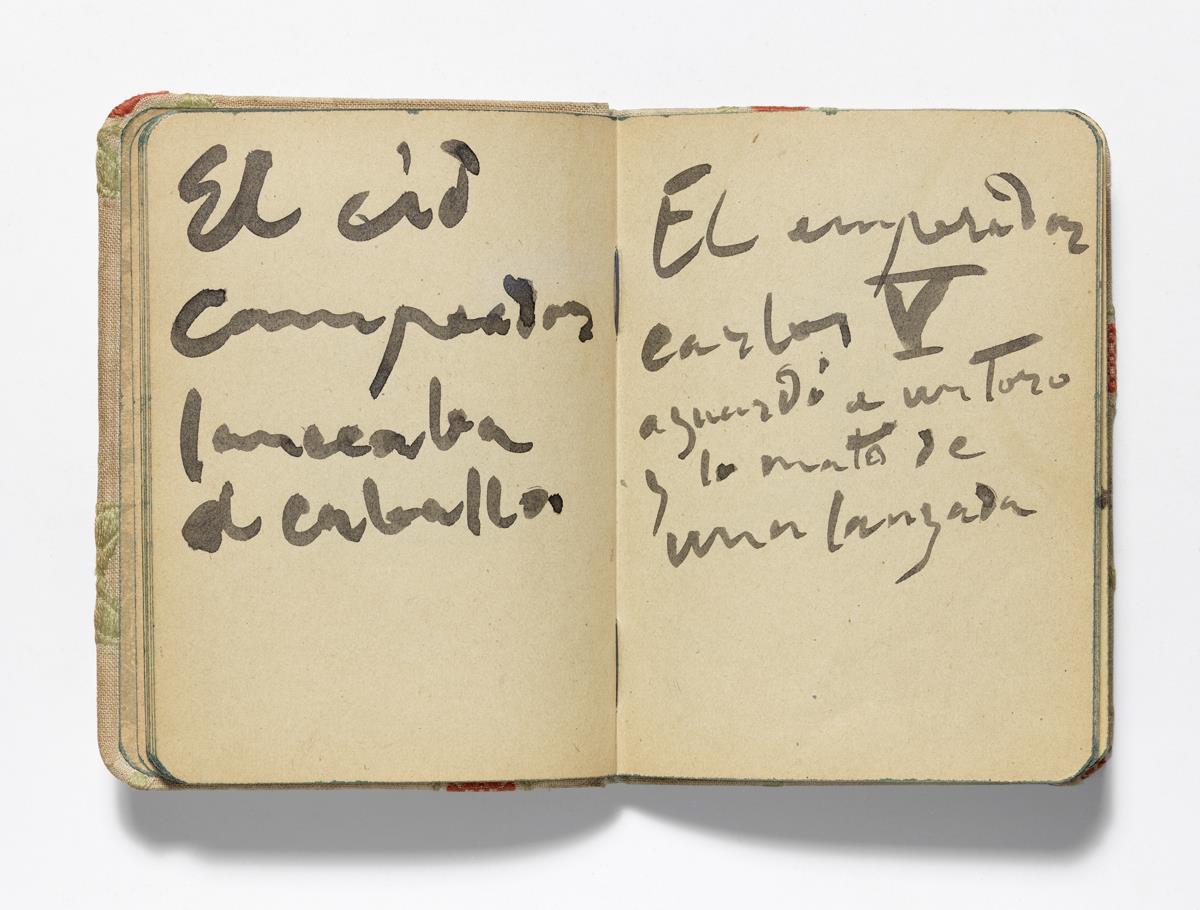 El cid
Campeador
lanceaba
a caballo
El emperador
carlos V
aguardó a un Toro
y lo mató de
una lanzada